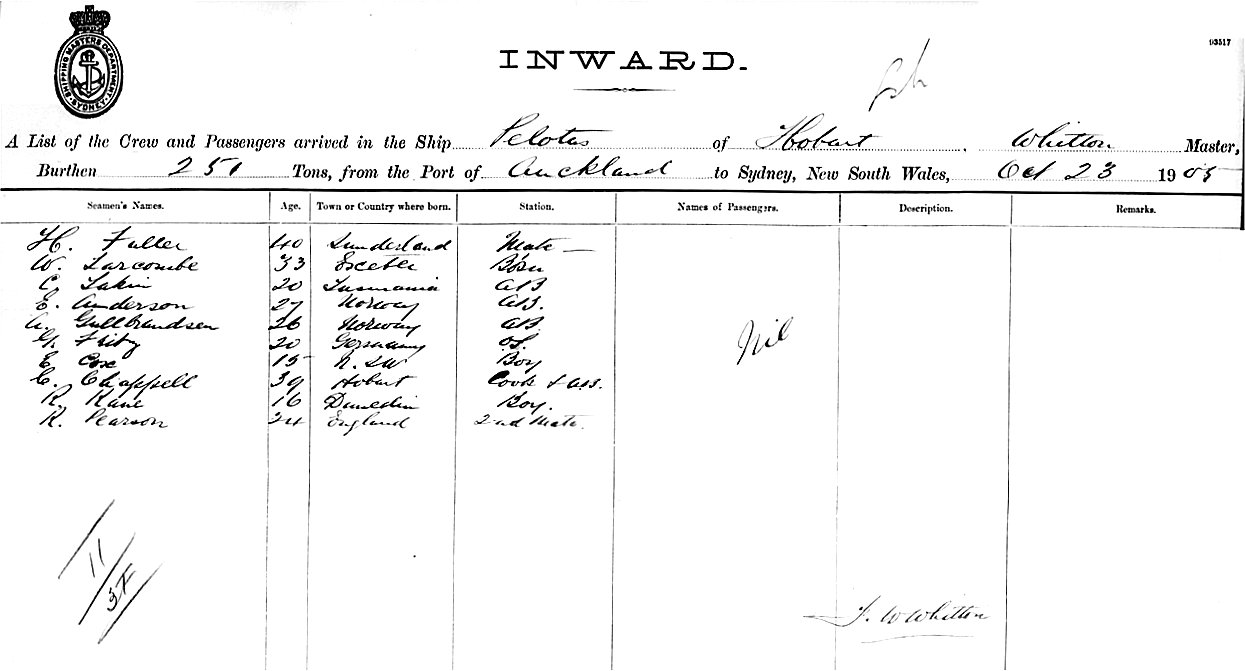 SHIPPING MASTERS DEPARTMENT SYDNEY
INWARD.
03517
A List of the Crew and Passengers arrived in the Ship Pelotas of Hobart. Whitton Master,
Burthen 251 Tons, from the Port of Auckland to Sydney, New South Wales, Oct 23 1905
Seamen's Names. Age. Town or Country where born. Station. Names of Passengers. Description. Remarks.
H. Fuller 40 Sunderland Mate
W. Larcombe 33 Exceter Bosn
C. Lakin 20 Tasmania AB
E. Anderson 27 Norway AB.
A. Gullbrandsen 26 Norway AB
20 Germany OS.
E. Cox 15 N.SW Boy
C. Chappell 39 Hobart Cook & A.B.
R. Kane 16 Dunedin Boy.
R. Pearson 24 England 2nd Mate.
Nil
11
F. W Whitton